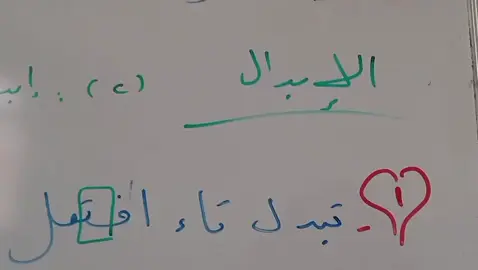 الإبدال (٢) : إبد
١ - تبدل تاء افتعل